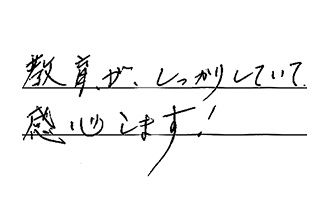 教育が、しっかりしていて
感心します!